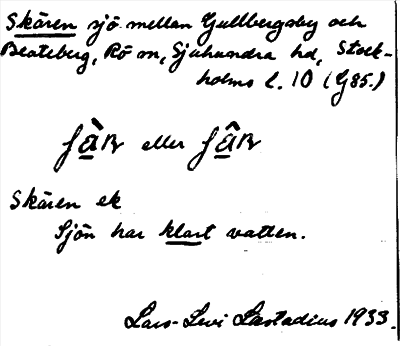 Skären sjö mellan Gullbergsby och
Beateberg, Rö sn, Sjuhundra hd, Stock-
holms l. 10 (G85.)
eller
Skären ek
Sjön har klart vatten.
Lars-Levi Læstadius 1933.